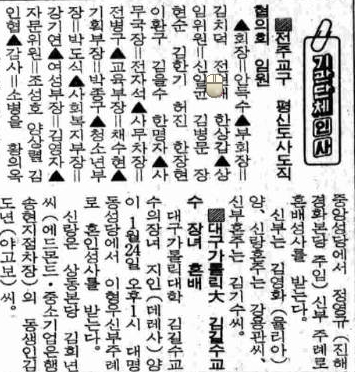 기관단체인사
▨전주교구 평신도사도직
협의회 임원
▲회장=안득수▲부회장=
김치덕 한상갑▲상
임위원=신일균 김병문 장
현순 김한기 허진 한장현
이환구 김을수 한명자▲사
무국장=전자석▲사무차장=
전병구▲교육부장=채수현▲
기획부장=박종구▲청소년부
장=박도식▲사회복지부장=
강기연▲여성부장=김영자▲
자문위원=조성호 양상렬 김
인협▲감사=소병을 황의옥
중앙성당에서 정영규 (진해
경화본당 주임) 신부 주례로
혼배성사를 받는다.
신부는 김영화 (율리아)
양, 신랑혼주는 강용관씨,
신부혼주는 김기수씨.
▨대구가톨릭大 김길수교
수 장녀 혼배
대구가톨릭대학 김길수교
수의장녀 지인(데레사) 양
이 1월24일 오후1시 대명
동성당에서 이형우신부주례
로 혼인성사를 받는다.
신랑은 상동본당 김희년
씨(에드몬드·중소기업은행
송현지점차장)의 동생인김
도년(야고보)씨.